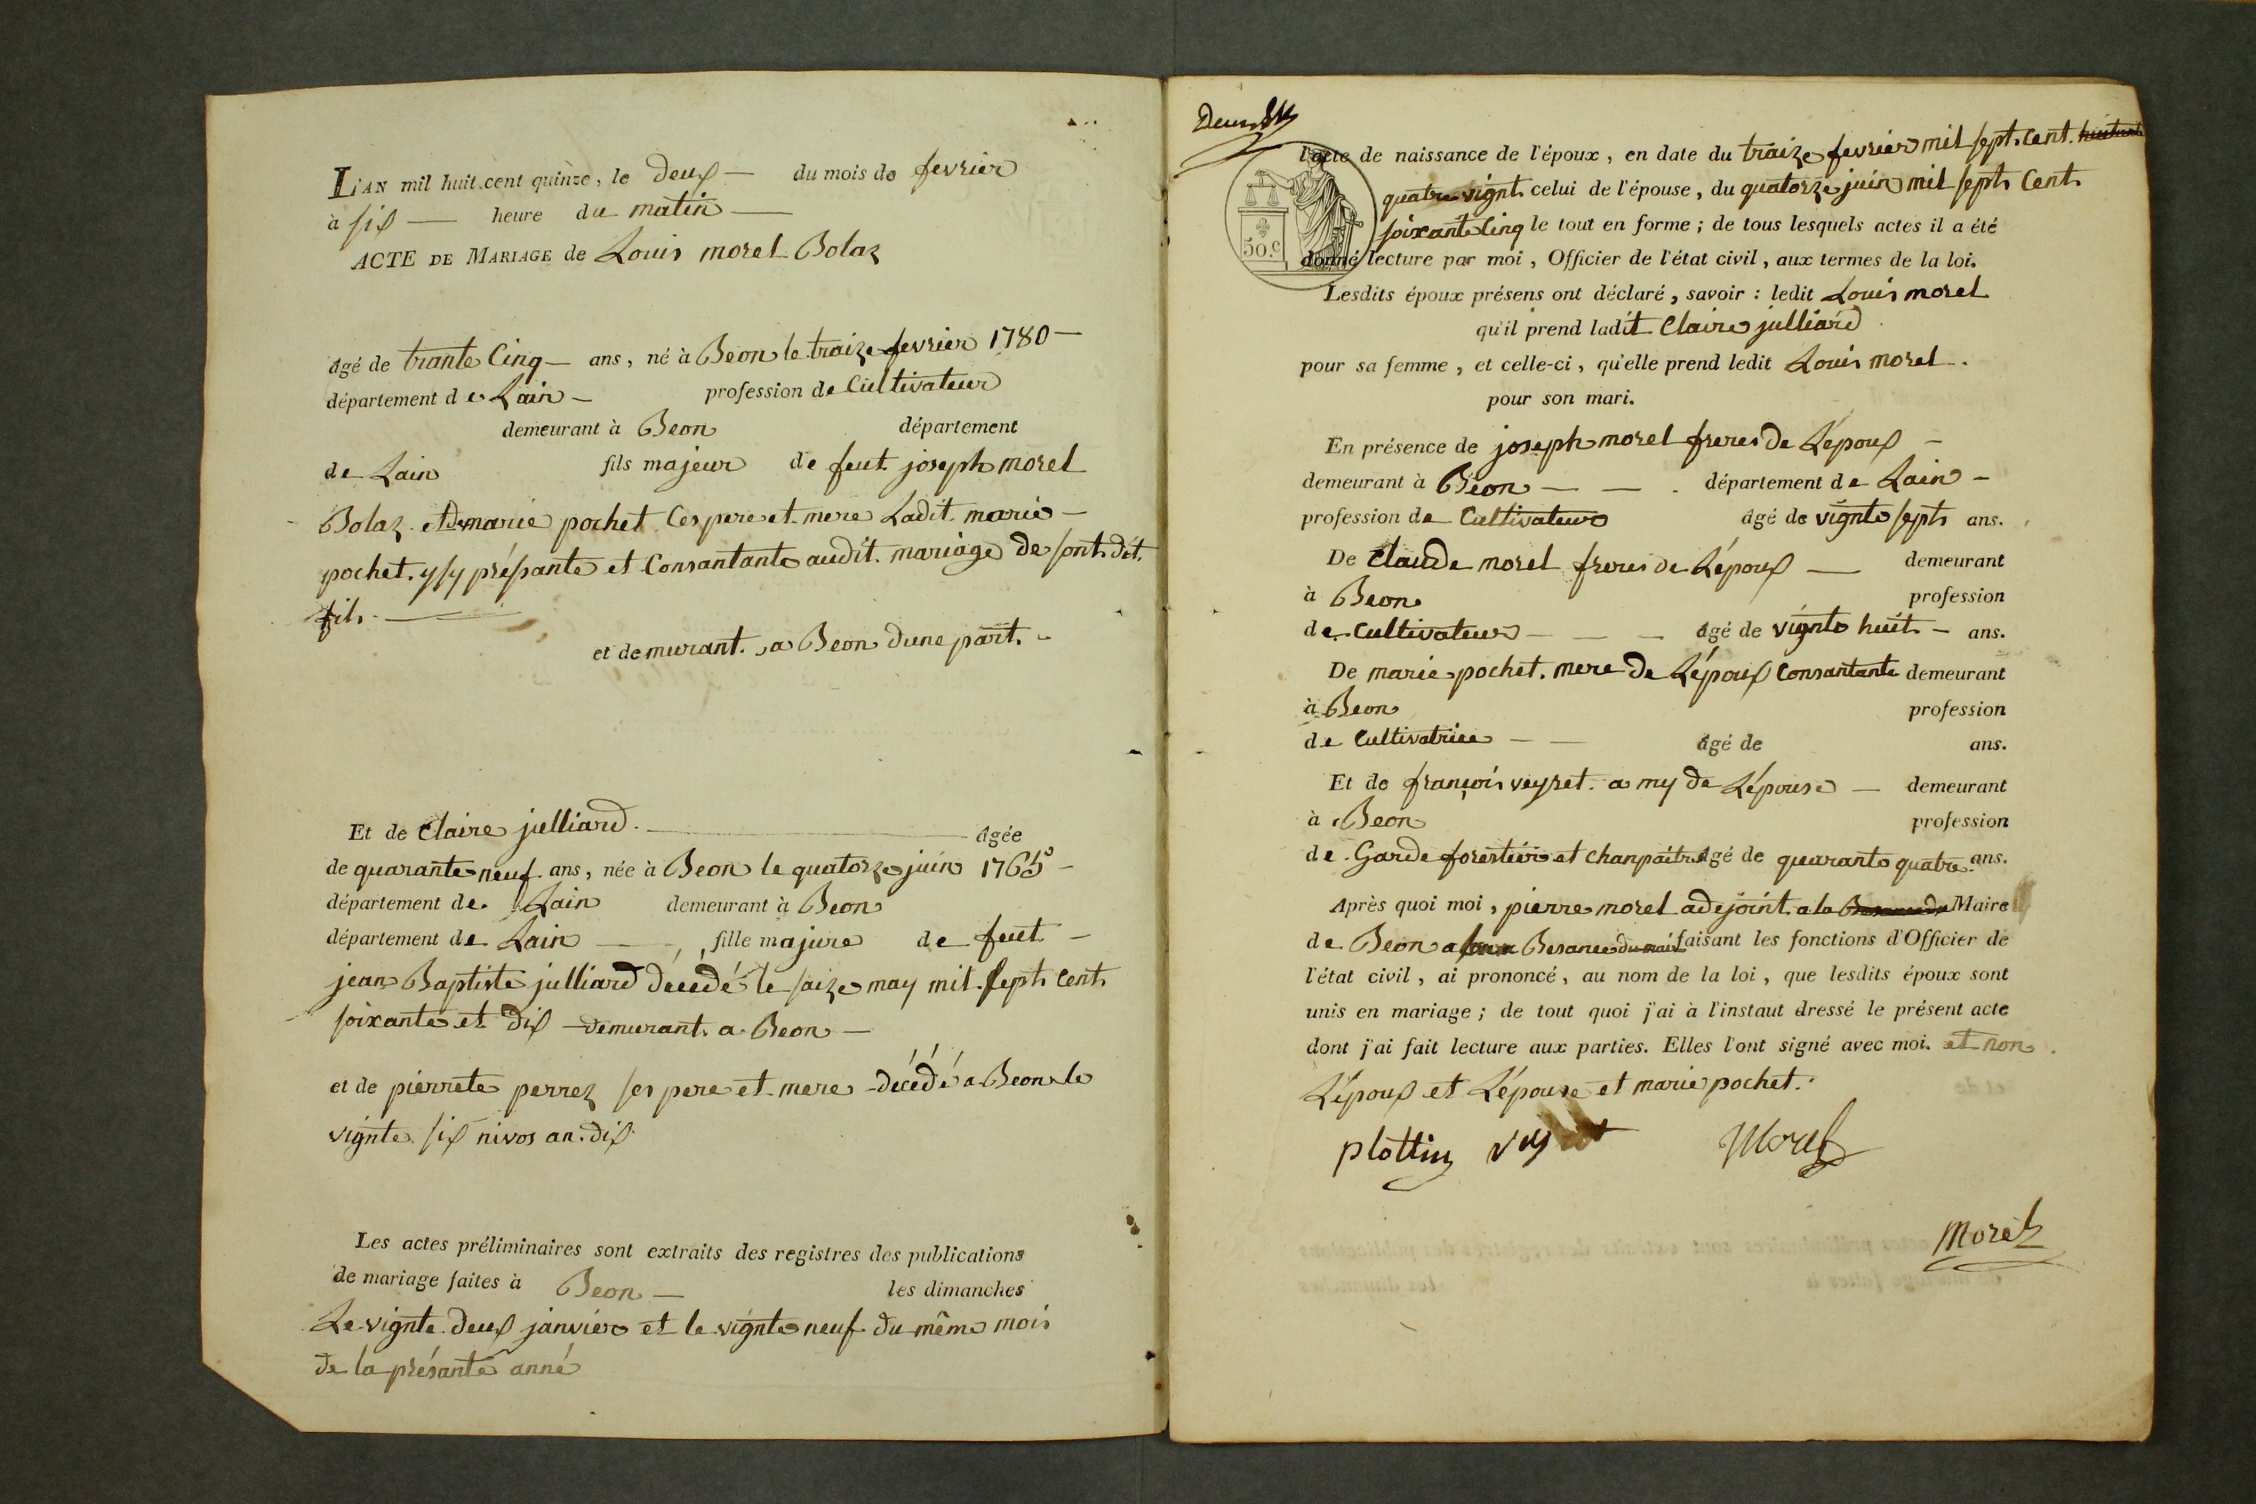 L'AN mil huit cent quinze, le deux — du mois de fevrier
à six — heure du matin —
ACTE DE MARIAGE de Louis morel Bolaz
âgé de trante Cinq — ans, né à Beon le traize fevrier 1780 —
département de Lain — profession de Cultivateur
demeurant à Beon département
de Lain fils majeur de feut joseph morel
Bolaz et de marie pochet Ces pere et mere Ladit marie —
pochet ysy présante et Consantante audit mariage de sont dit
fils —
et demurant a Beon dune part.
Et de Claire julliard — âgée
de quarante neuf ans, née à Beon le quatorze juin 1765 —
département de Lain demeurant à Beon
département de Lain — fille majure de feut —
jean Baptiste julliard décédé le saize may mil sept cent
soixante et dix demurant a Beon —
et de pierrete perrez ses pere et mere décédé a Beon le
vignte six nivos an dix
Les actes préliminaires sont extraits des registres des publications
de mariage faites à Beon — les dimanches
Le vignte deux janvier et le vignte neuf du même mois
de la présante anné
50.c
l'acte de naissance de l'époux, en date du traize fevrier mil sept cent huitante
quatre vignt celui de l'épouse, du quatorze juin mil sept Cent
soixante Cinq le tout en forme ; de tous lesquels actes il a été
donné lecture par moi, Officier de l'état civil, aux termes de la loi.
Lesdits époux présens ont déclaré, savoir : ledit Louis morel
qu'il prend ladit Claire julliard
pour sa femme, et celle-ci, qu'elle prend ledit Louis morel
pour son mari.
En présence de joseph morel freres de Lépoux —
demeurant à Beon — — département de Lain —
profession de Cultivateur âgé de vignte sept ans.
De Claude morel freres de Lépoux — demeurant
à Beon profession
de Cultivateur — — — âgé de vignte huit — ans.
De marie pochet mere de Lépoux Consantante demeurant
à Beon profession
de Cultivatrice — — âgé de ans.
Et de françois veyret a my de Lépouse — demeurant
à Beon profession
de Garde forestier et Chanpaitre âgé de quaranto quatre ans.
Après quoi moi, pierre morel adejoint a la Maire
de Beon a Besance du mair faisant les fonctions d'Officier de
l'état civil, ai prononcé, au nom de la loi, que lesdits époux sont
unis en mariage ; de tout quoi j'ai à l'instaut dressé le présent acte
dont j'ai fait lecture aux parties. Elles l'ont signé avec moi. et non
Lépoux et Lépouse et marie pochet.
plottin Morel
Morel